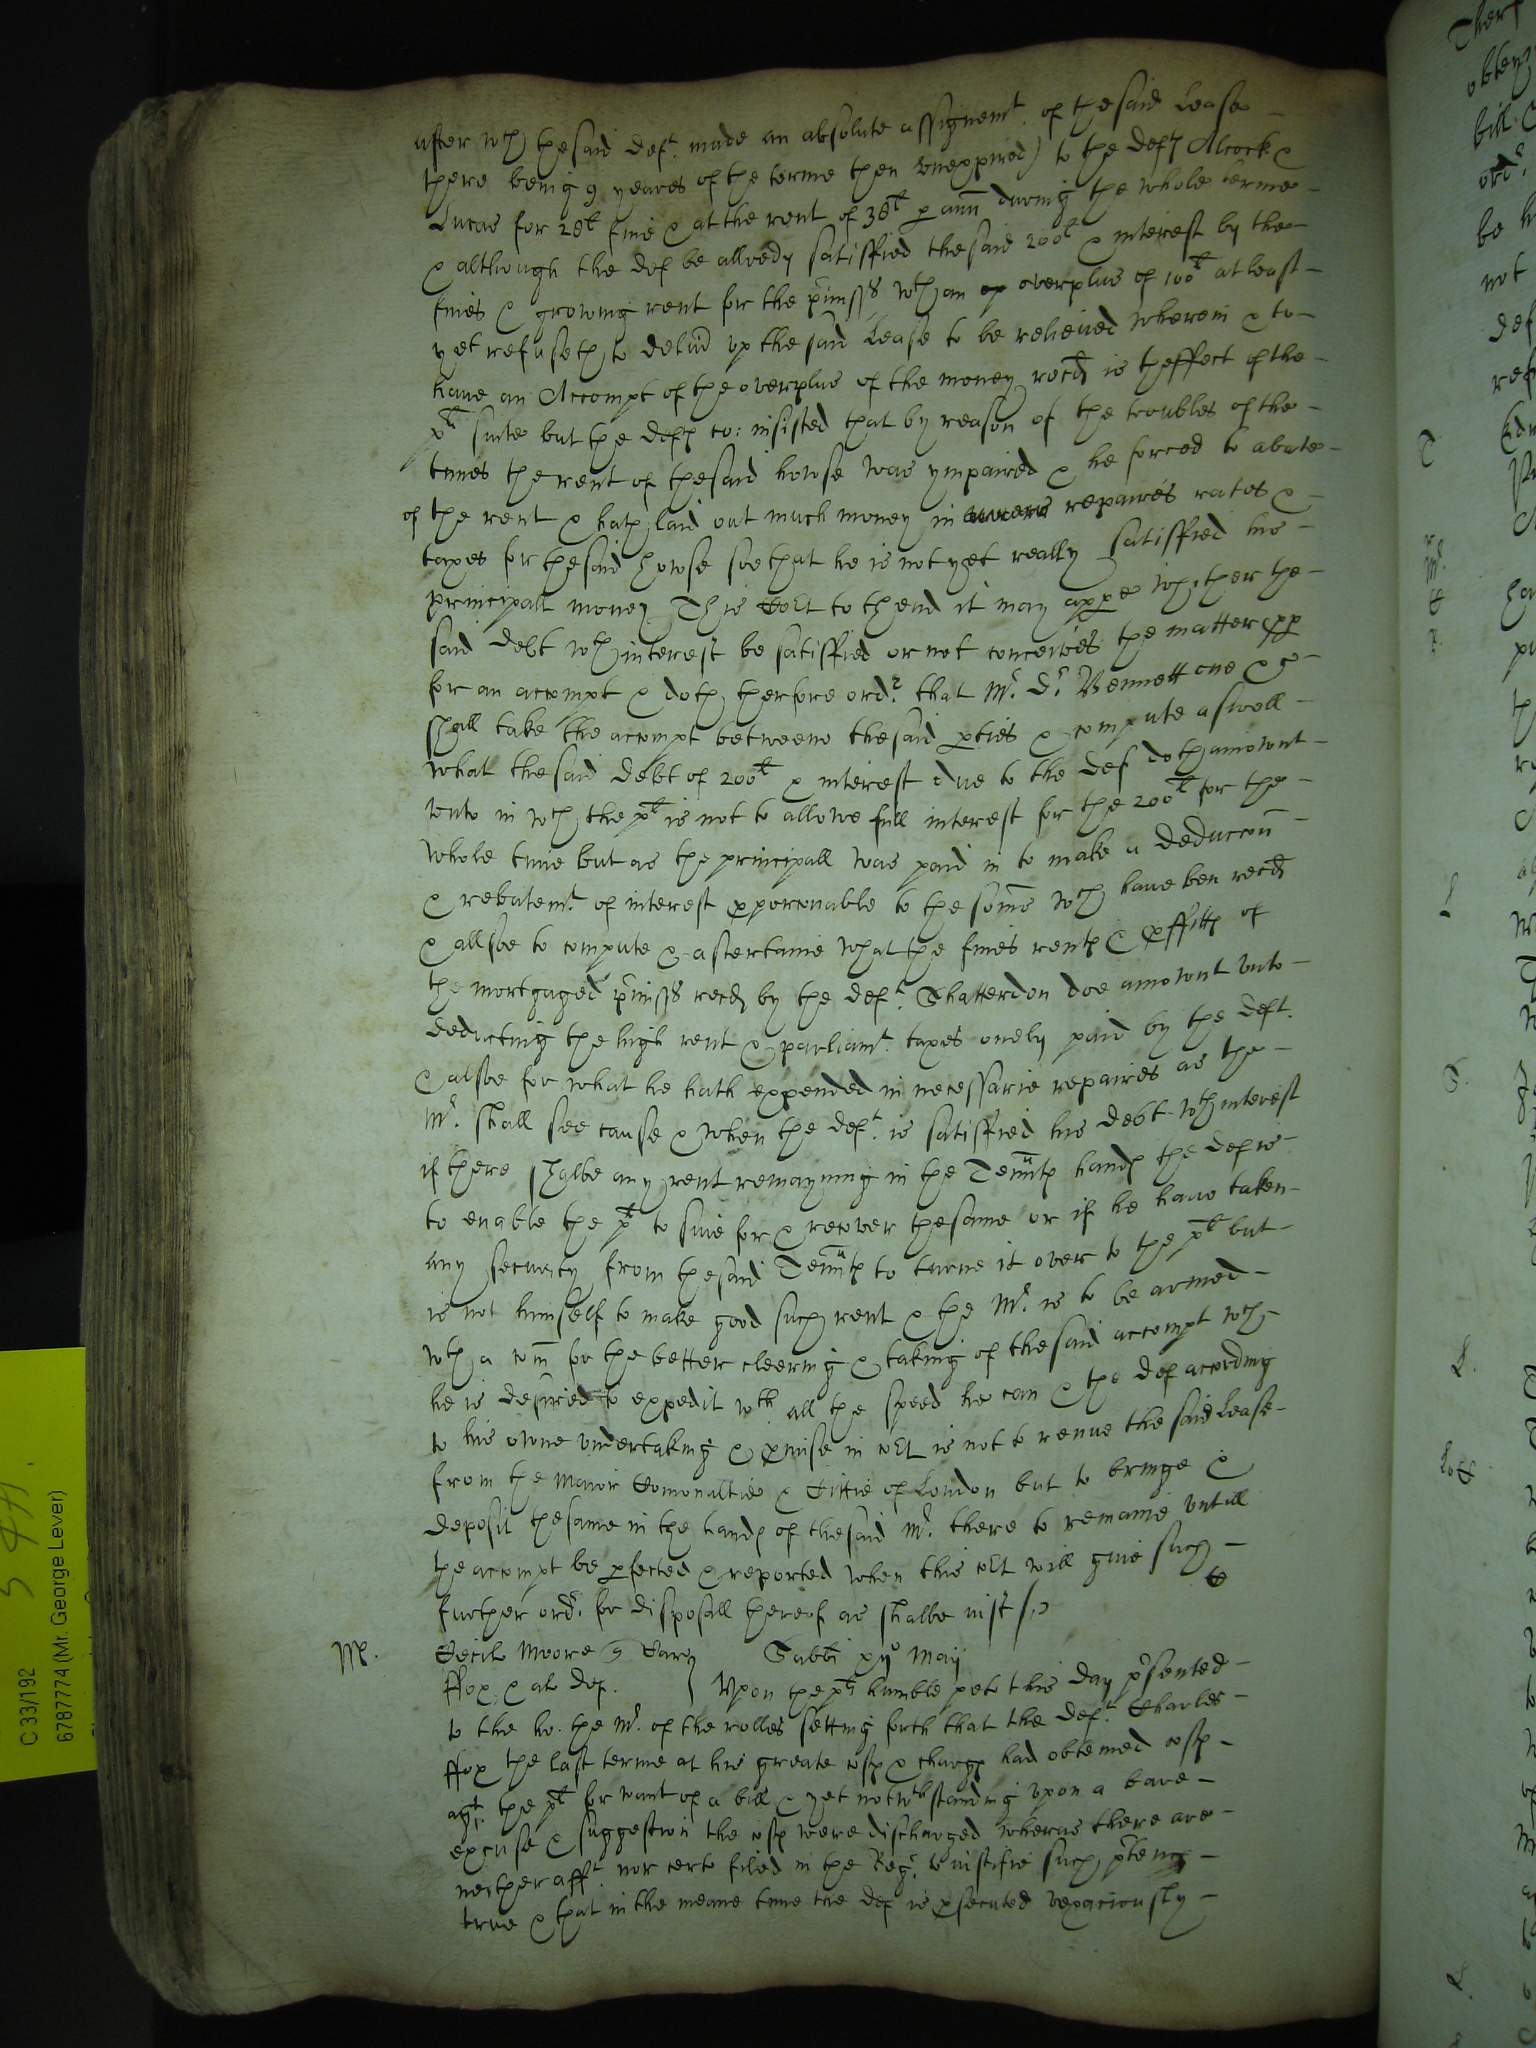 after wch the said deft. made an absolute assignemt. of the said Lease
there being 9 yeares of the terme then unexpired) to the defts Alcock &
Lucas for 28l fine & at the rent of 38l p ann during the whole terme
& although the def be allredy satisfied the said 200l & interest by the
fines & growing rent for the pmisses wth an overplus of 100l at least
yet refuseth to delivr up the said Lease to be relieued wherein & to
haue an Accompt of the overplus of the money recd is theffect of the
plts suite but the defts co: insisted that by reason of the troubles of the
times the rent of the said howse was ympaired & he forced to abate
of the rent & hath laid out much money in repaires rates &
taxes for the said howse soe that he is not yet really satisfied his
principall money This Cort to thend it may appe whether the
said debt wth interest be satisfied or not conceives the matter pp
for an accompt & doth therfore ordr. that Mr. Dr. Bennett one &c
shall take the accompt betweene the said pties & compute aswell
what the said debt of 200l & interest due to the def doth amount
unto in wch the plt is not to allowe full interest for the 200l for the
whole time but as the principall was paid in to make a deduccon
& rebatemt. of interest pporconable to the somes wch haue ben recd
& allsoe to compute & astertaine what the fines rents & pffitts of
the mortgaged pmisses recd by the deft. Shatterdon doe amount unto
deducting the high rent & parliamt. taxes onely paid by the deft.
& alsoe for what he hath expended in necessarie repaires as the
Mr. shall see cause & when the deft. is satisfied his debt wth interest
if there shalbe any rent remayning in the Tennts hands the def is
to enable the plt to sue for & recover the same or if he haue taken
any security from the said Tennts to turne it over to the plt but
is not himself to make good such rent & the Mr. is to be armed
wth a com for the better cleering & taking of the said accompt wch
he is desired to expedit wth all the speed he can & the def according
to his owne undertaking & pmise in cort is not to renue the said Lease
from the Maior Comonaltie & Cittie of London but to bringe &
deposit the same in the hands of the said Mr. there to remaine untill
the accompt be pfected & reported when this cort will giue such
further ordr. for disposall thereof as shalbe iust
Cecile Moore Sabbti xyo Maij
ffox & al def. Upon the plts humble peto this day psented
to the ho. the Mr. of the rolles setting forth that the deft. Charles
ffox the last terme at his greate costs & charge had obteined costs
agt. the plt for want of a bill & yet notwthstanding upon a bare
excuse & suggestion the costs were discharged wheras there are
neither afft. nor certe filed in the Regr. to iustifie such ptence
true & that in the meane time the def is psecuted vexaciously
C 33/192
6787774 (Mr. George Lever)